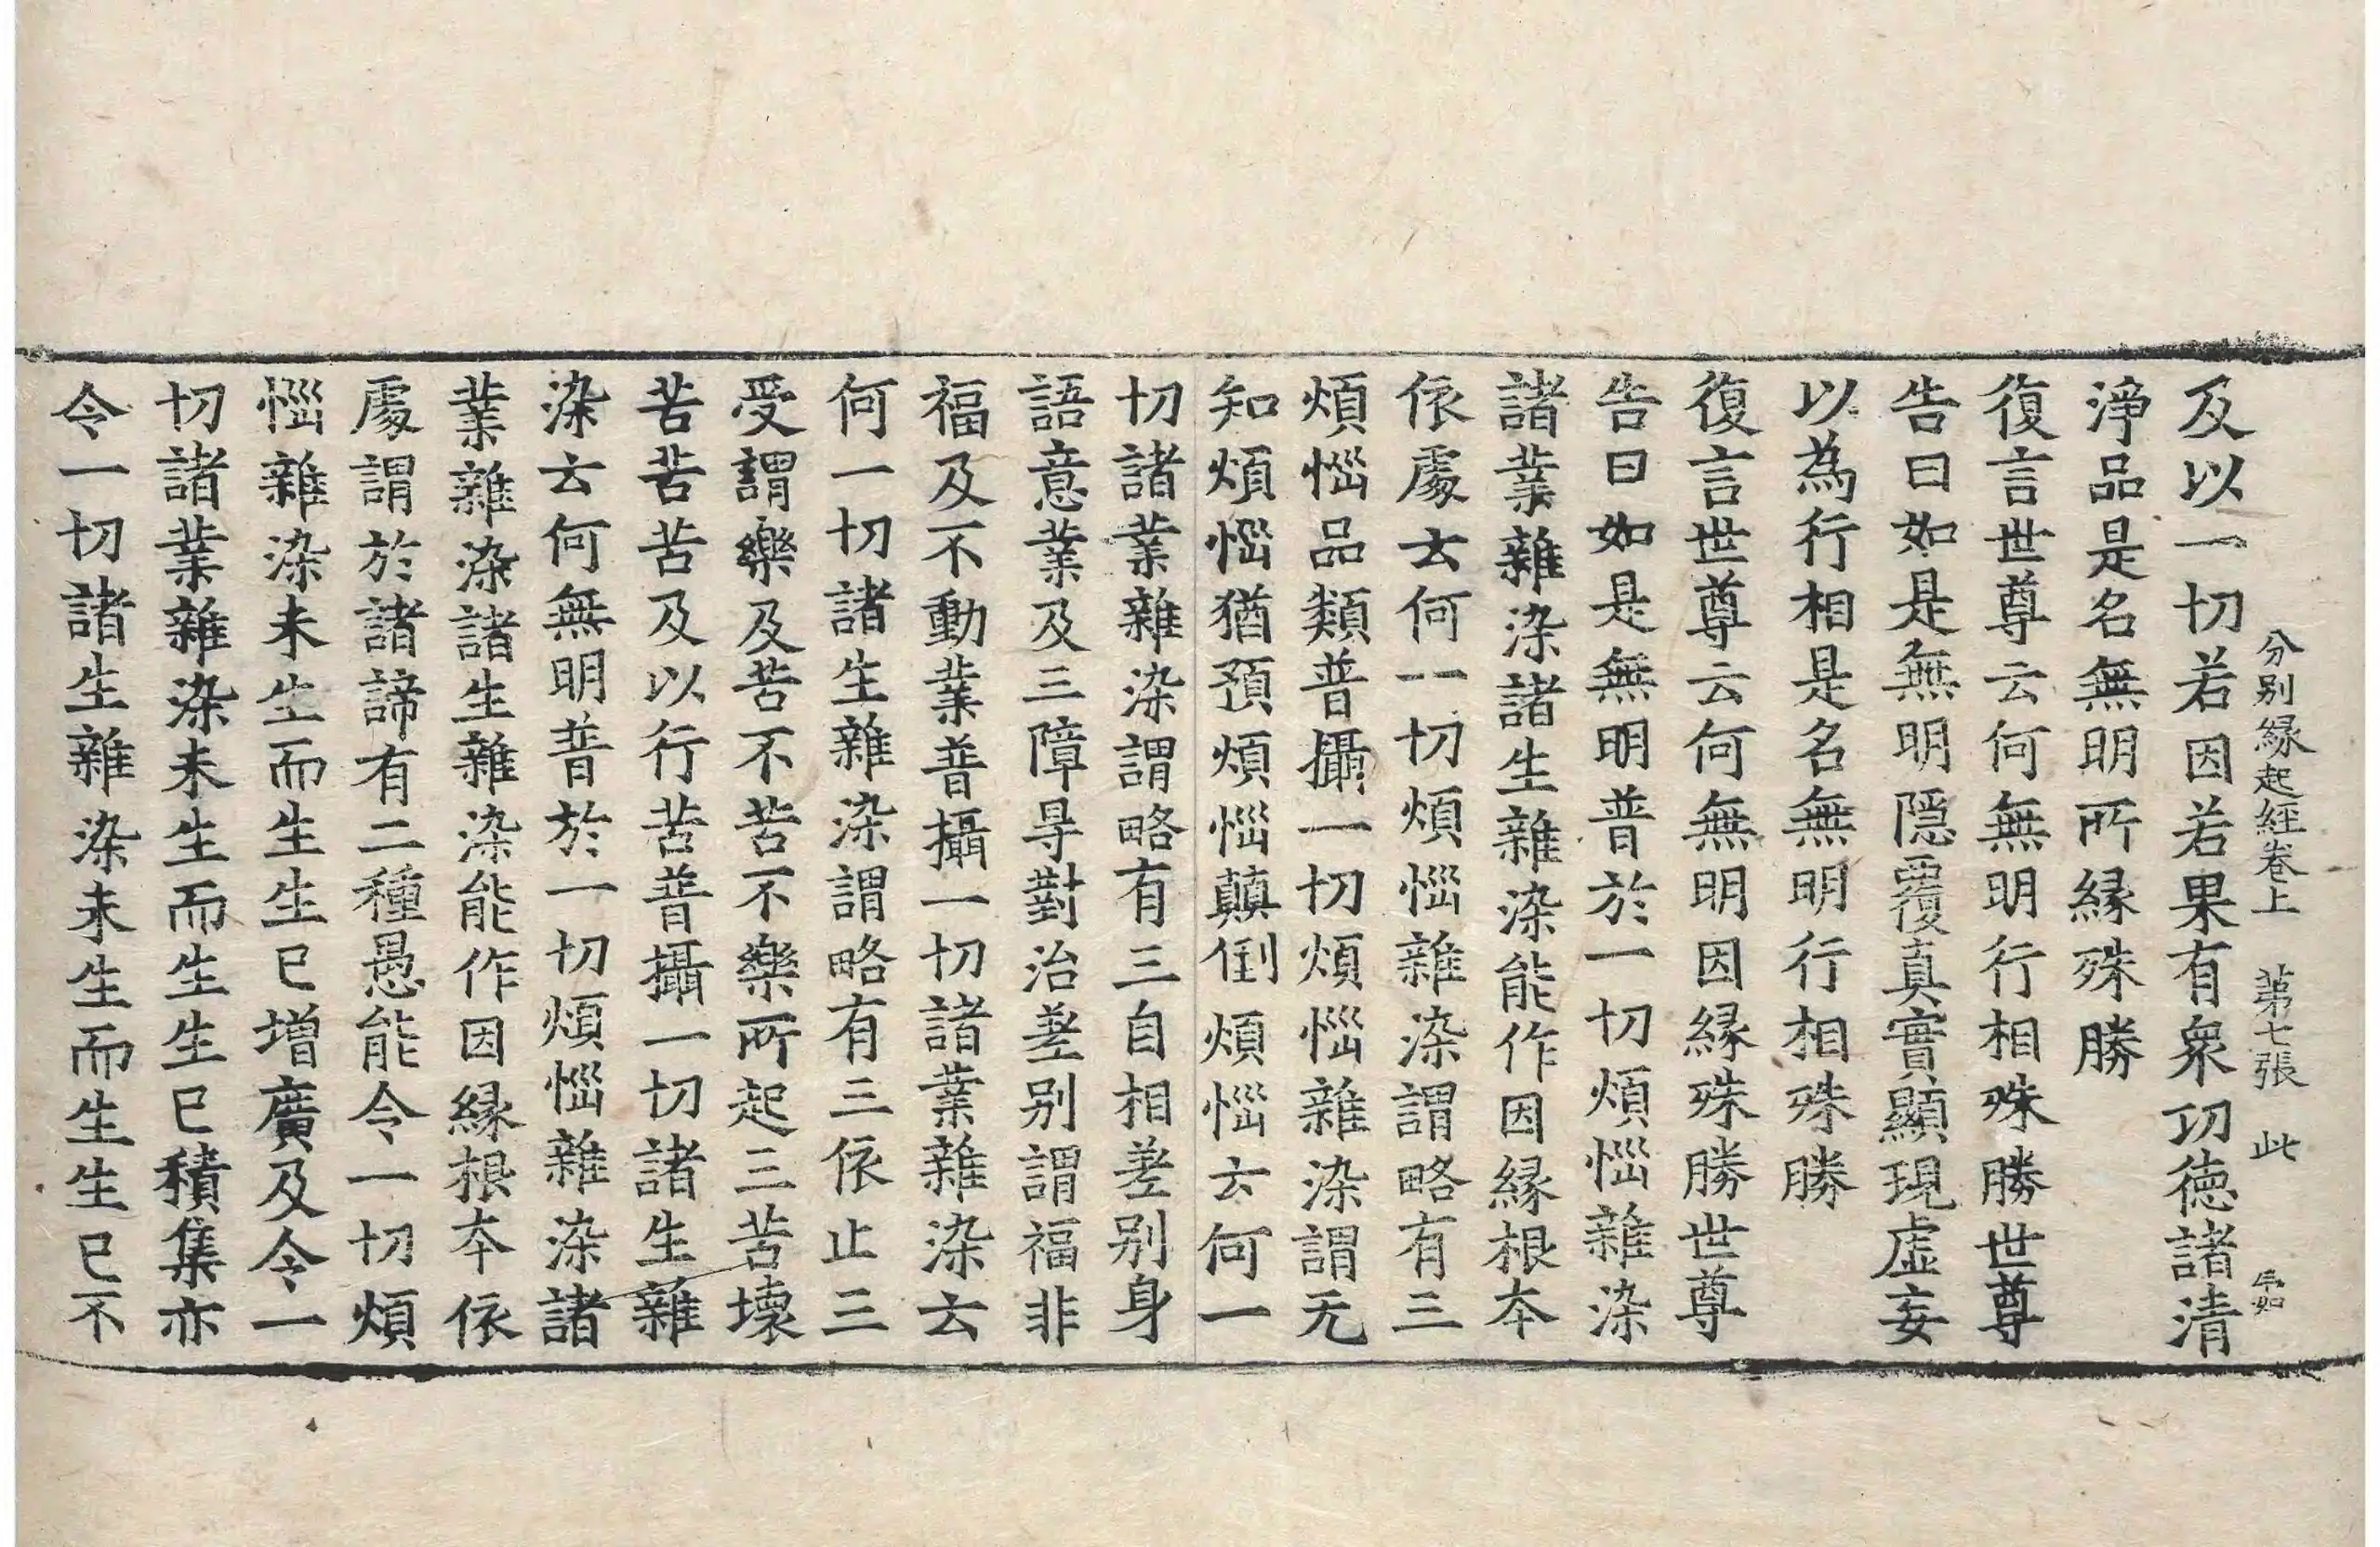 分别縁起経卷上　第七張　此
及以一切若因若果有衆功徳諸清
淨品是名無明所縁殊勝
復言世尊云何無明行相殊勝世尊
告曰如是無明隱覆真實顯現虛妄
以為行相是名無明行相殊勝
復言世尊云何無明因縁殊勝世尊
告曰如是無明普於一切煩惱雜染
諸業雜染諸生雜染能作因縁根夲
依處云何一切煩惱雜染謂略有三
煩惱品類普攝一切煩惱雜染謂无
知煩惱猶預煩惱顛倒煩惱云何一
切諸業雜染謂略有三自相差别身
語意業及三障㝵對治差别謂福非
福及不動業普攝一切諸業雜染云
何一切諸生雜染謂略有三依止三
受謂樂及苦不苦不樂所起三苦壞
苦苦苦及以行苦普攝一切諸生雜
染云何無明普於一切煩惱雜染諸
業雜染諸生雜染能作因縁根夲依
處謂於諸諦有二種愚能令一切煩
惱雜染未生而生生已增廣及令一
切諸業雜染未生而生生已積集亦
令一切諸生雜染未生而生生已不